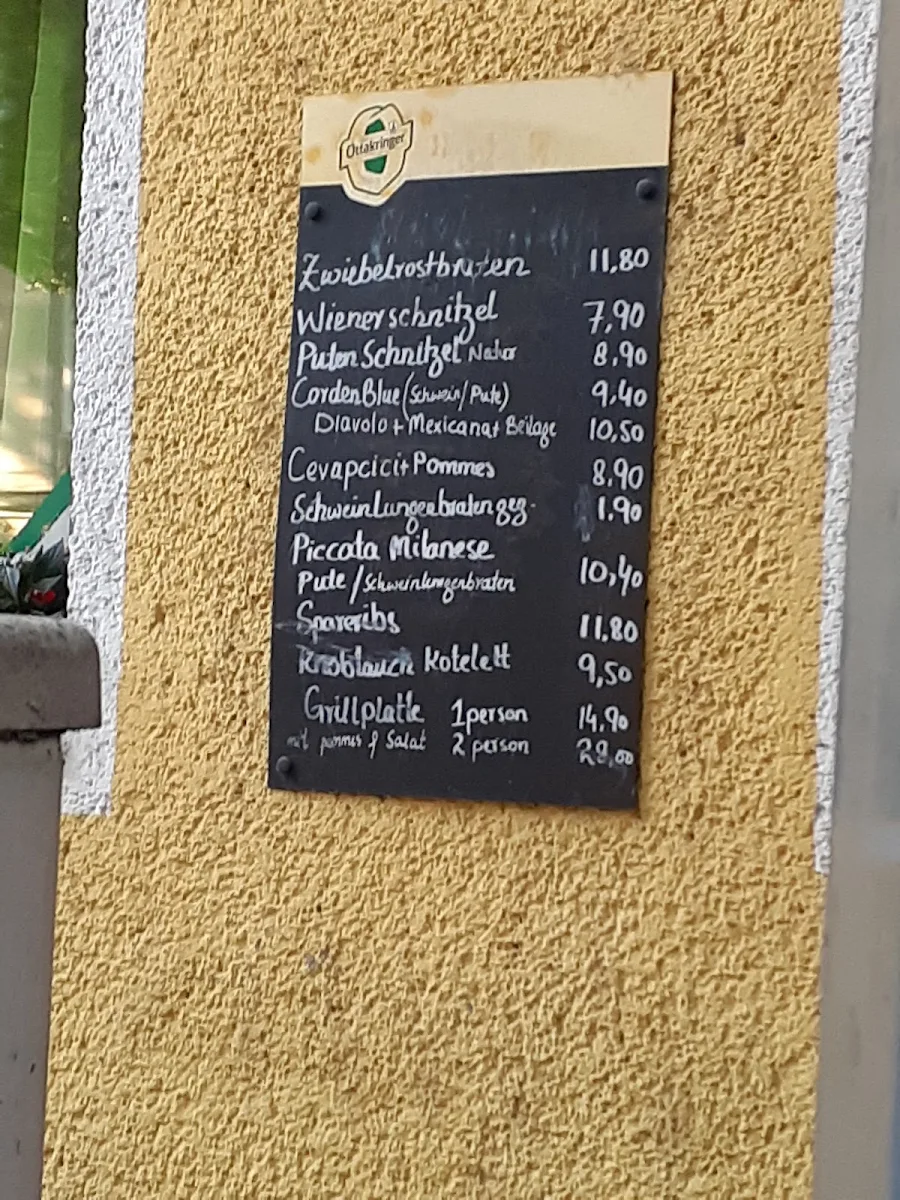 Ottakringer
Zwiebelrostbraten 11,80
Wienerschnitzel 7,90
Puten Schnitzel Natur 8,90
Cordenblue (Schwein/Pute) 9,40
Diavolo + Mexicana + Beilage 10,50
Cevapcici + Pommes 8,90
Schweinlungenbraten geg. 1.90
Piccata Milanese
Pute / Schweinlungenbraten 10,40
Spareribs 11.80
Knoblauch Kotelett 9,50
Grillplatte 1person 14,90
mit pommes & Salat 2 person 28,00